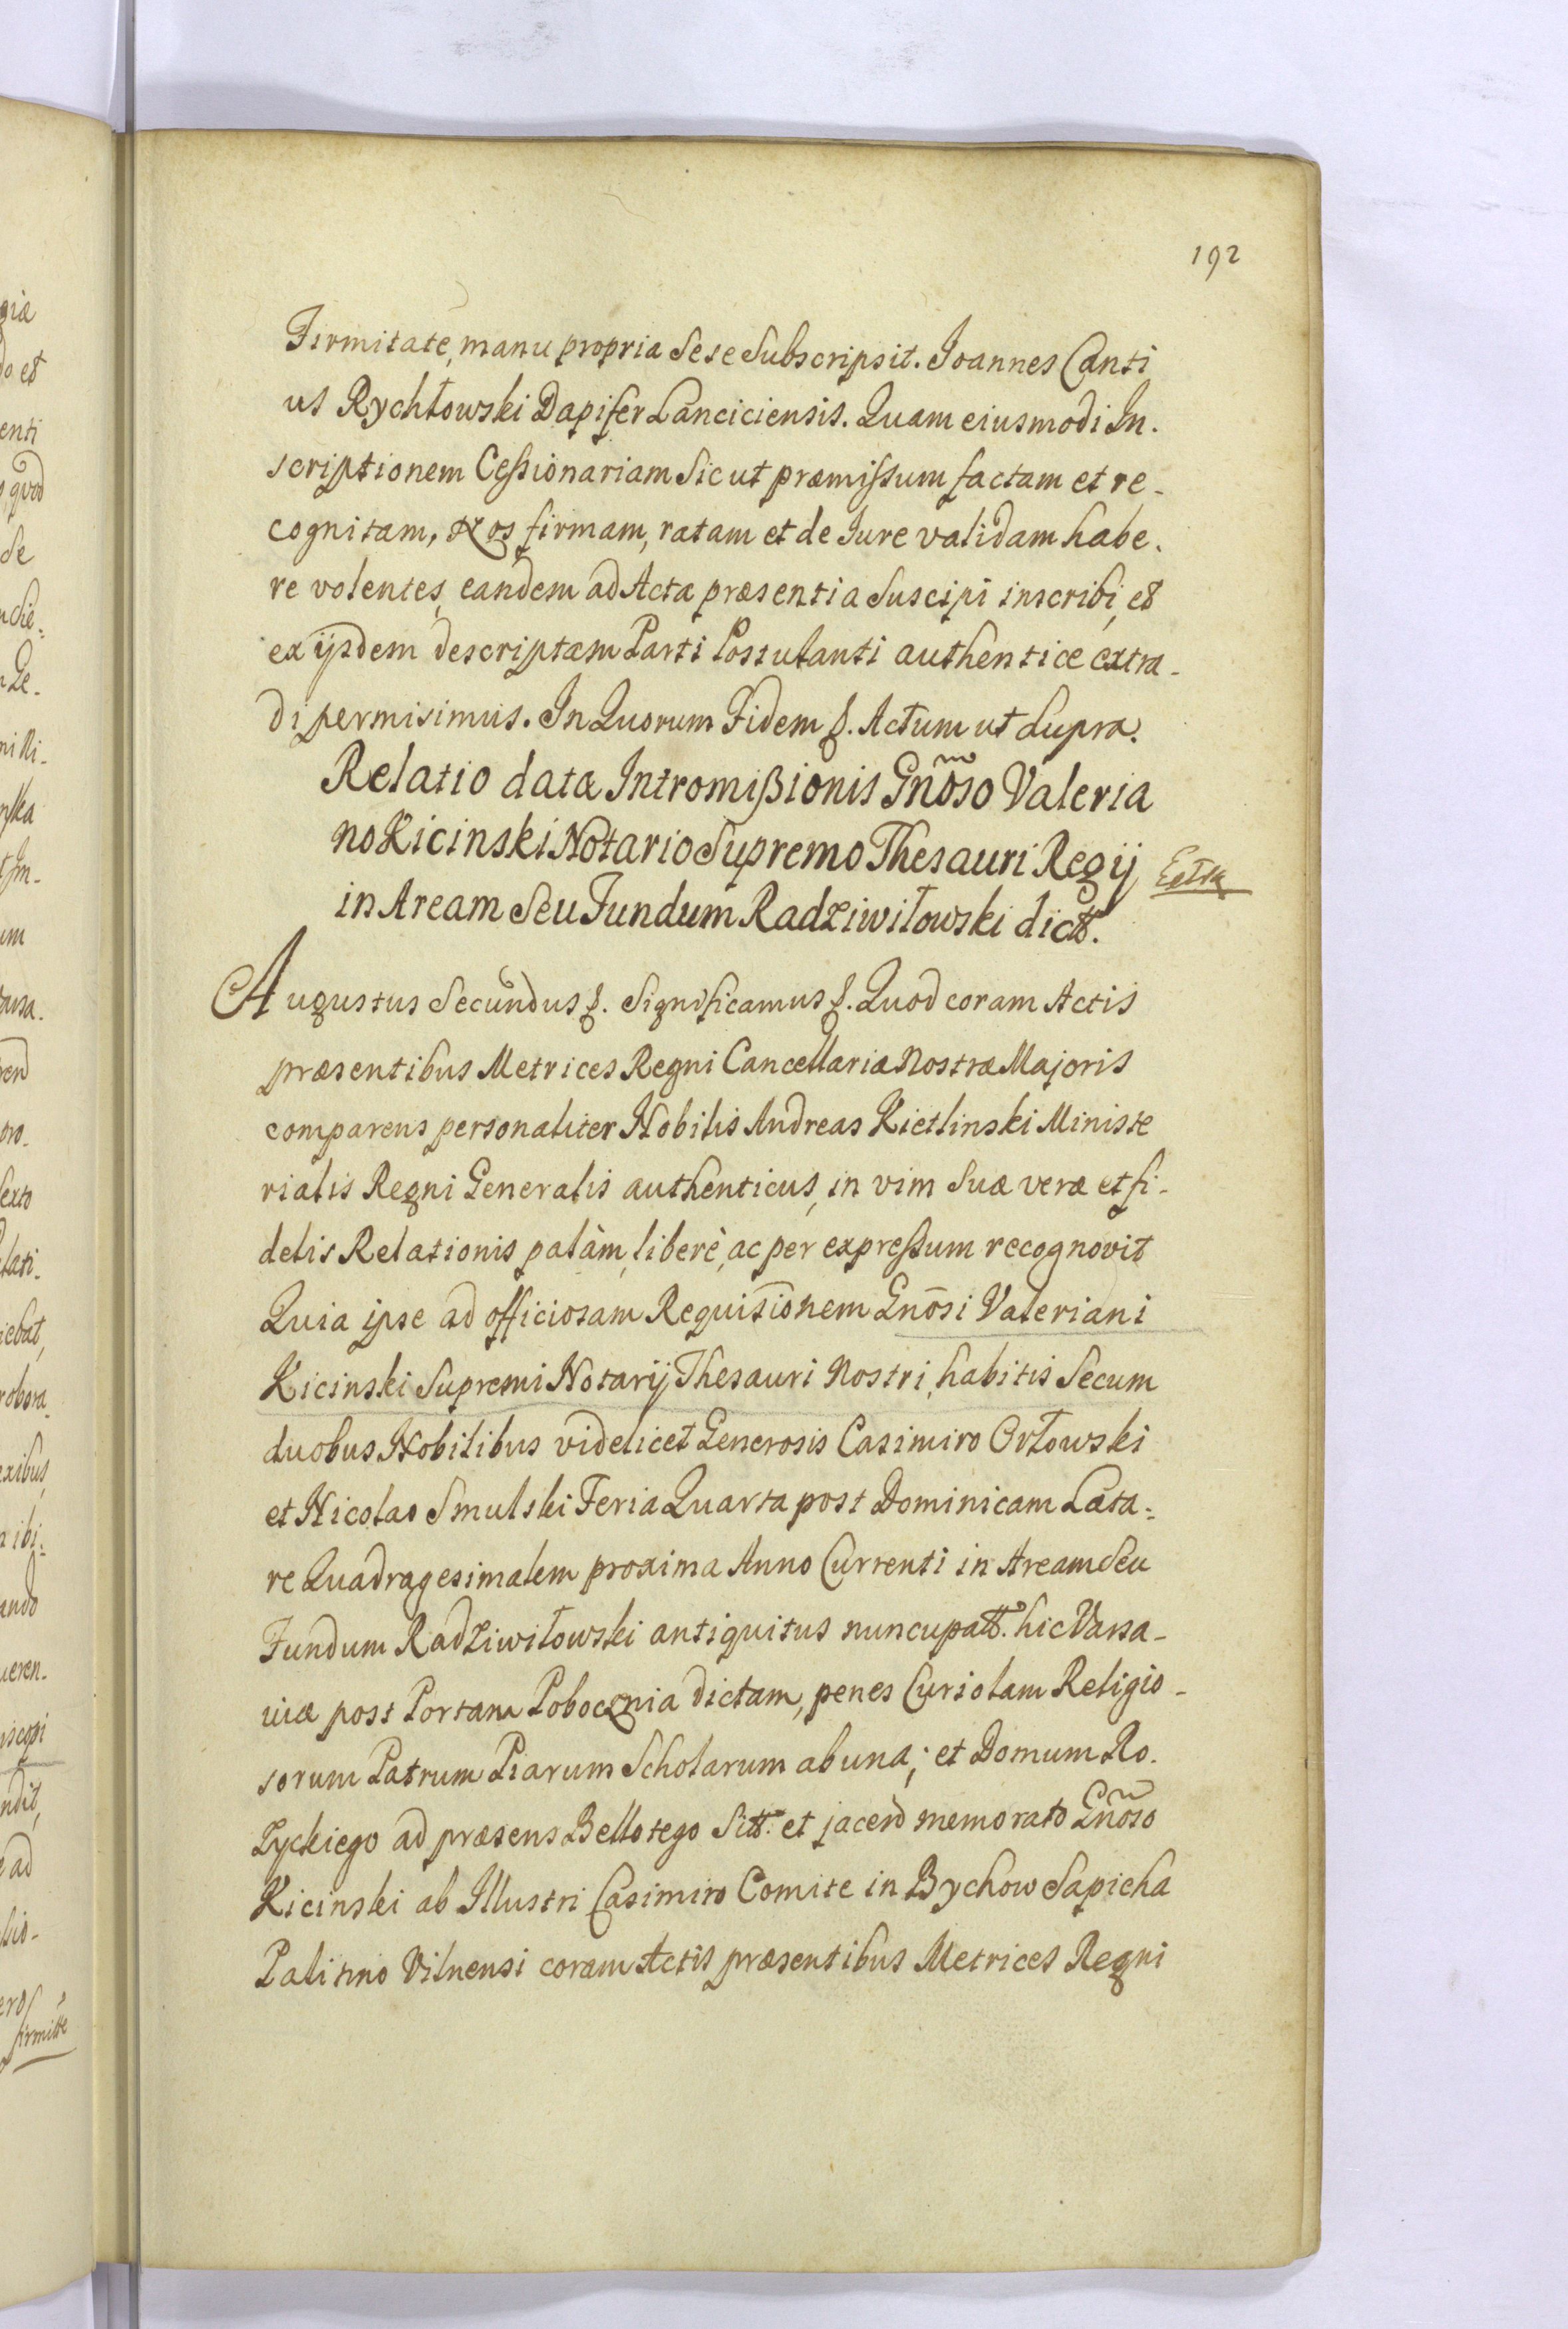 192
Firmitate, manu propria Sese Subscripsit. Joannes Canti
us Rychłowski Dapifer Lanciciensis. Quam eiusmodi In-
scriptionem Cessionariam Sicut præmissum factam et re-
cognitam, Nos firmam, ratam et de Iure validam habe-
re volentes, eandem ad Acta præsentia Suscipi inscribi, et
ex ijsdem descriptam Parti Postulanti authentice extra-
di permisimus. In Quorum Fidem &. Actum ut Supra.
Relatio datæ Intromißionis Gnõso Valeria
no Kicinski Notario Supremo Thesauri Regij
Extra
in Aream Seu Fundum Radziwiłowski dictt.
Augustus Secundus &. Significamus &. Quod coram Actis
præsentibus Metrices Regni Cancellariæ Nostræ Majoris
comparens personaliter Nobilis Andreas Kietlinski Ministe
rialis Regni Generalis authenticus, in vim Suæ veræ et fi-
delis Relationis palàm, liberè, ac per expressum recognovit
Quia ipse ad officiosam Requisionem Gnõsi Valeriani
Kicinski Supremi Notarij Thesauri Nostri, habitis Secum
duobus Nobilibus videlicet Generosis Casimiro Orłowski
et Nicolao Smulski Feria Quarta post Dominicam Læta-
re Quadragesimalem proxima Anno Currenti in Aream Seu
Fundum Radziwiłowski antiquitus nuncupatt. hic Varsa-
viæ post Portam Pobocznia dictam, penes Curiolam Religio-
sorum Patrum Piarum Scholarum ab una; et Domum Ro-
życkiego ad præsens Bellotego Sitt. et jacend memorato Gnõso
Kicinski ab Illustri Casimiro Comite in Bychow Sapieha
Palitino Vilnensi coram Actis præsentibus Metrices Regni